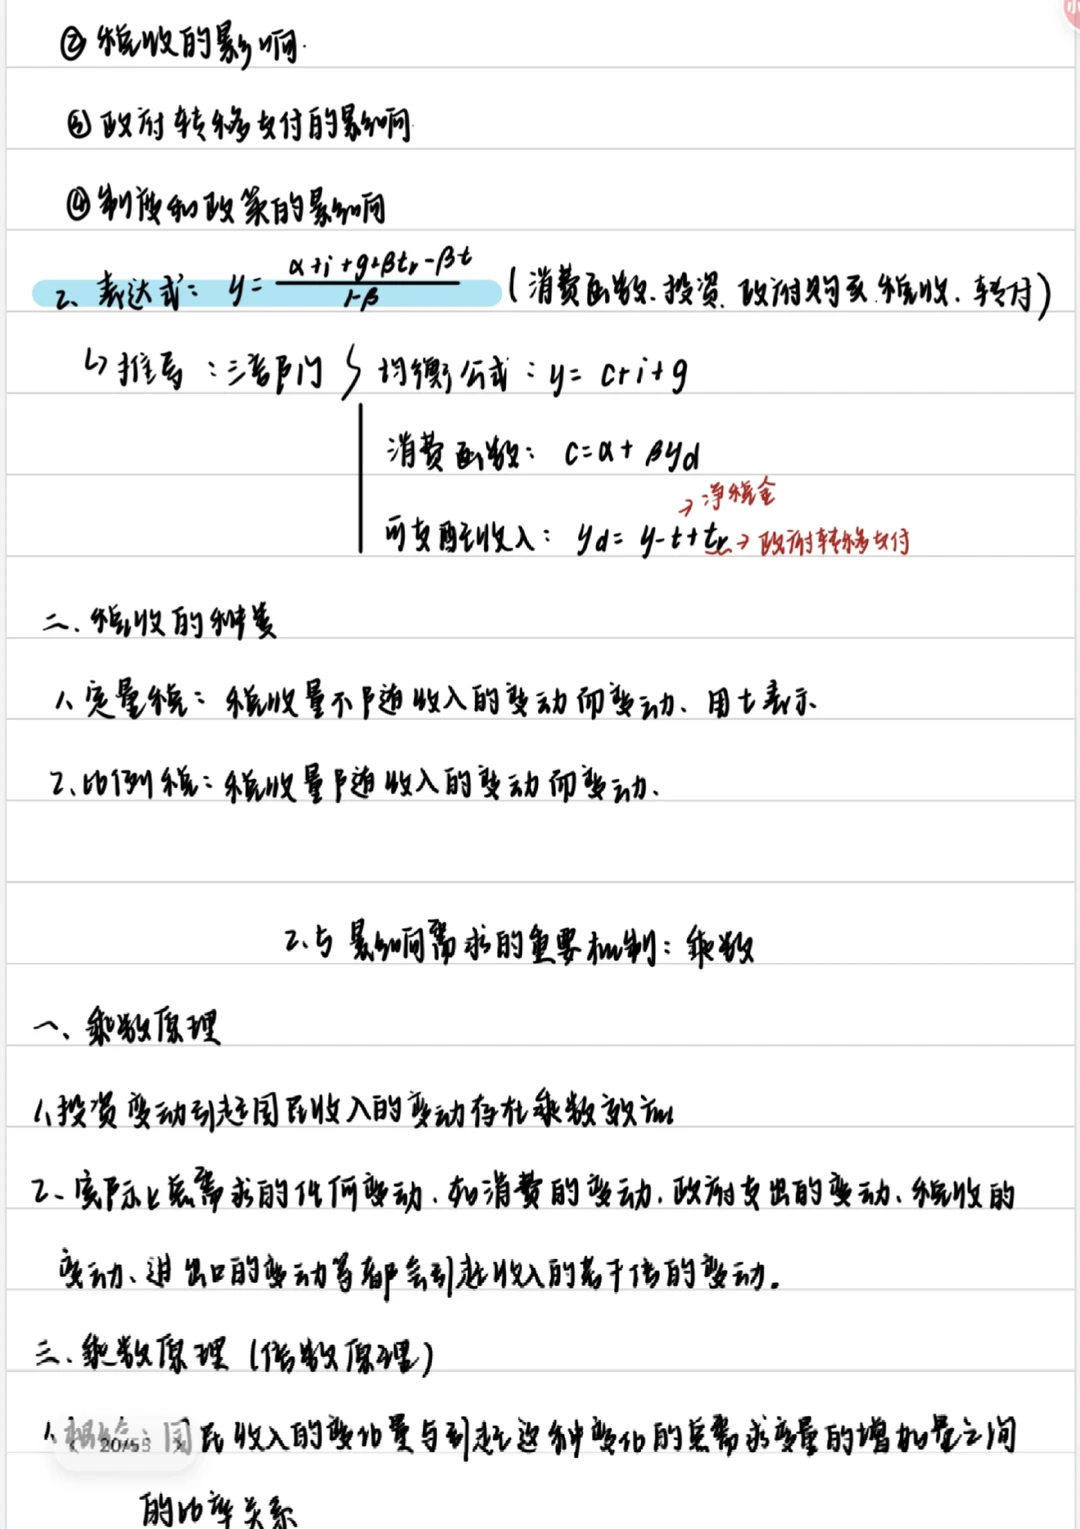 ② 税收的影响.
③ 政府转移支付的影响
④ 制度和政策的影响
2. 表达式: y = (α+i+g+βtr-βt)/(1-β) (消费函数、投资、政府购买、税收、转付)
↳ 推导:三部门 { 均衡公式: y= c+i+g
消费函数: c=α+ βyd
→净税金
可支配收入: yd= y-t+tr → 政府转移支付
二. 税收的种类
1、定量税: 税收量不随收入的变动而变动、用t表示
2、比例税: 税收量随收入的变动而变动、
2.5 影响需求的重要机制: 乘数
一、乘数原理
1、投资变动引起国民收入的变动存在乘数效应
2、实际上总需求的任何变动、如消费的变动、政府支出的变动、税收的
变动、进出口的变动等都会引起收入的若干倍的变动.
三、乘数原理 (倍数原理)
1、概念:国民收入的变化量与引起这种变化的总需求变量的增加量之间
20/55
的比率关系